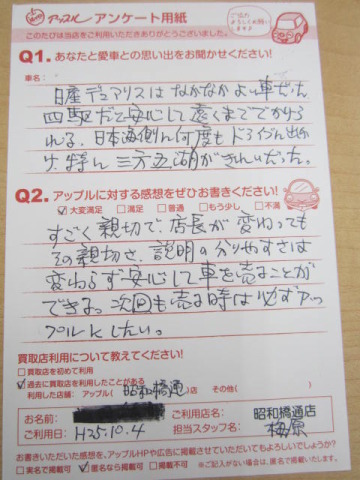 アップル アンケート用紙
このたびは当店をご利用いただきありがとうございました。
Q1. あなたと愛車との思い出をお聞かせください!
車名:
日産デュアリスはなかなかよい車だった
四駆だと安心して遠くまででかけら
れる。日本海側に何度もドライブに出か
け、特に三方五湖がきれいだった。
Q2. アップルに対する感想をぜひお書きください!
☑大変満足 □満足 □普通 □もう少し □不満
すごく親切で、店長が変わっても
その親切さ、説明の分りやすさは
変わらず安心して車を売ることが
できる。次回も売る時は必ずアッ
プルにしたい。
買取店利用について教えてください!
□買取店を初めて利用
☑過去に買取店を利用したことがある
利用した店舗: アップル(昭和橋通)店 その他( )
お名前:
ご利用店名: 昭和橋通店
ご利用日: H25.10.4
担当スタッフ名: 梅原
お書きいただいた感想を、アップルHPや広告に掲載させていただいてもよろしいでしょうか?
□実名で掲載可 ☑匿名なら掲載可 □掲載不可 ※ご記入がない場合は、匿名で掲載いたします。